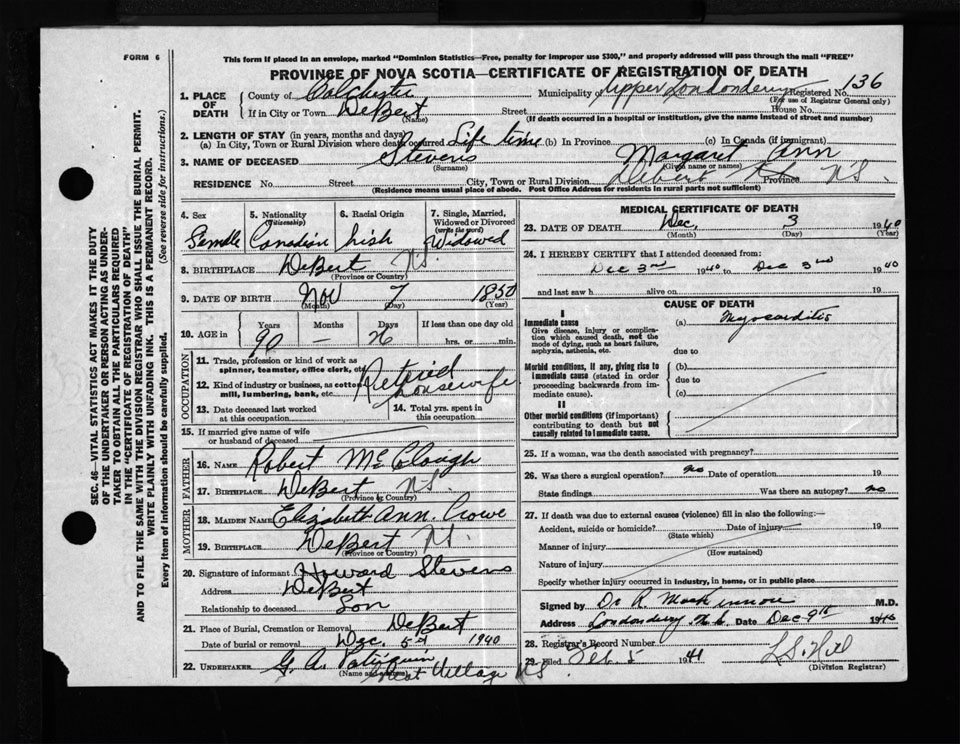 FORM 6
This form if placed in an envelope, marked "Dominion Statistics—Free, penalty for improper use $300," and properly addressed will pass through the mail "FREE"
PROVINCE OF NOVA SCOTIA—CERTIFICATE OF REGISTRATION OF DEATH
1. PLACE OF DEATH
County of Colchester Municipality of Upper Londonderry Registered No. 136
(For use of Registrar General only)
If in City or Town DeBert Street House No.
(Name) (If death occurred in a hospital or institution, give the name instead of street and number)
2. LENGTH OF STAY (in years, months and days)
(a) In City, Town or Rural Division where death occurred Life time (b) In Province (c) In Canada (if immigrant)
3. NAME OF DECEASED Stevens Margaret Ann
(Surname) (Given name or names)
RESIDENCE No. Street City, Town or Rural Division Debert Province N.S.
(Residence means usual place of abode. Post Office Address for residents in rural parts not sufficient)
4. Sex Female
5. Nationality (Citizenship) Canadian
6. Racial Origin Irish
7. Single, Married, Widowed or Divorced (write the word) Widowed
8. BIRTHPLACE DeBert N.S.
(Province or Country)
9. DATE OF BIRTH Nov 7 1850
(Month) (Day) (Year)
10. AGE in Years 90 Months — Days 26 If less than one day old hrs. or min.
OCCUPATION
11. Trade, profession or kind of work as spinner, teamster, office clerk, etc. Retired
12. Kind of industry or business, as cotton mill, lumbering, bank, etc. housewife
13. Date deceased last worked at this occupation
14. Total yrs. spent in this occupation
15. If married give name of wife or husband of deceased
FATHER
16. NAME Robert McClough
17. BIRTHPLACE DeBert N.S.
(Province or Country)
MOTHER
18. MAIDEN NAME Elizabeth Ann Crowe
19. BIRTHPLACE DeBert N.S.
(Province or Country)
20. Signature of informant Howard Stevens
Address DeBert
Relationship to deceased Son
21. Place of Burial, Cremation or Removal DeBert
Date of burial or removal Dec. 5th 1940
22. UNDERTAKER G. A.
(Name and address) Great Village N.S.
MEDICAL CERTIFICATE OF DEATH
23. DATE OF DEATH Dec. 3 1940
(Month) (Day) (Year)
24. I HEREBY CERTIFY that I attended deceased from:
Dec 3rd 1940 to Dec 3rd 1940
and last saw h alive on 19
CAUSE OF DEATH
I
Immediate cause (a) Myocarditis
Give disease, injury or complication which caused death, not the mode of dying, such as heart failure, asphyxia, asthenia, etc.
due to
Morbid conditions, if any, giving rise to immediate cause (stated in order proceeding backwards from immediate cause).
(b)
due to
(c)
II
Other morbid conditions (if important) contributing to death but not causally related to immediate cause.
25. If a woman, was the death associated with pregnancy?
26. Was there a surgical operation? no Date of operation 19
State findings Was there an autopsy? no
27. If death was due to external causes (violence) fill in also the following:—
Accident, suicide or homicide? Date of injury 19
(State which)
Manner of injury
(How sustained)
Nature of injury
Specify whether injury occurred in industry, in home, or in public place
Signed by Dr R. MacKinnon M.D.
Address Londonderry N.S. Date Dec 9th 1940
28. Registrar's Record Number
29. Filed Feb. 5 1941
(Division Registrar)
SEC. 46—VITAL STATISTICS ACT MAKES IT THE DUTY
OF THE UNDERTAKER OR PERSON ACTING AS UNDER-
TAKER TO OBTAIN ALL THE PARTICULARS REQUIRED
IN THE "CERTIFICATE OF REGISTRATION OF DEATH"
AND TO FILE THE SAME WITH THE DIVISION REGISTRAR WHO SHALL ISSUE THE BURIAL PERMIT.
WRITE PLAINLY WITH UNFADING INK. THIS IS A PERMANENT RECORD.
Every item of information should be carefully supplied. (See reverse side for instructions.)